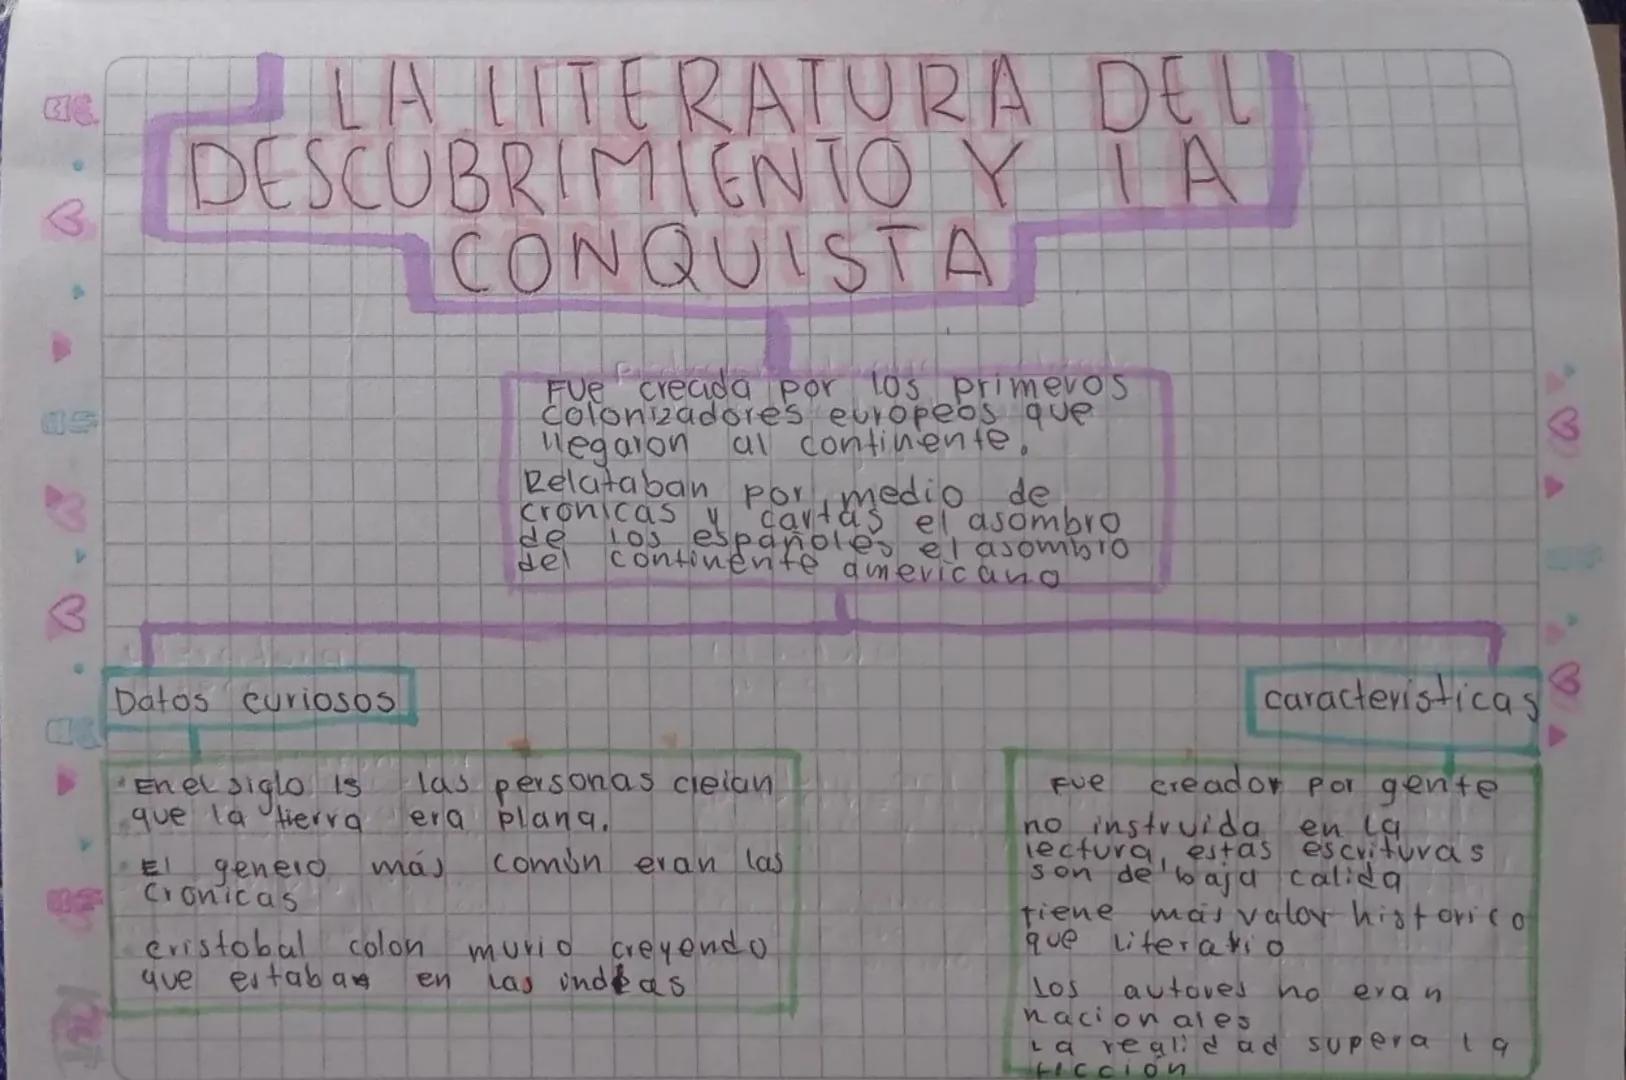 LA LITERATURA DEL
DESCUBRIMIENTO Y LA
CONQUISTA
Fue creada por los primeros
colonizadores europeos que
llegaron al continente.
Relataban por medio de
cronicas y cartas el asombro
de los españoles el asombro
del continente americano
Datos curiosos
En el siglo 15 las personas creian
que la tierra era plana.
El genero más común eran las
Cronicas
cristobal colon murio creyendo
que estaba en las indias
características
Fue creador por gente
no instruida en la
lectura, estas escrituras
son de baja calida
tiene más valor historico
que literario
Los autores no eran
nacionales
La realidad supera la
ficción